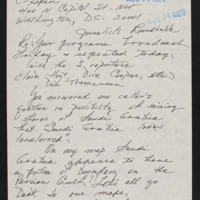 C-Span
400 N. Capitol St. NW
Washington, D.C. 20001
Journalists Roundtable
Re: Your programs broadcast
Friday & repeated today,
with the 3 reporters
Cooper, etc)
Dan Thomasson
You answered one caller's
question on possibility of mining
of Saudi Arabia
that Saudi Arabia looks
landlocked.
On my map Saudi
Arabia appears to have
a portion of boundary on the
Persian Gulf. Let's all go
back to our maps.